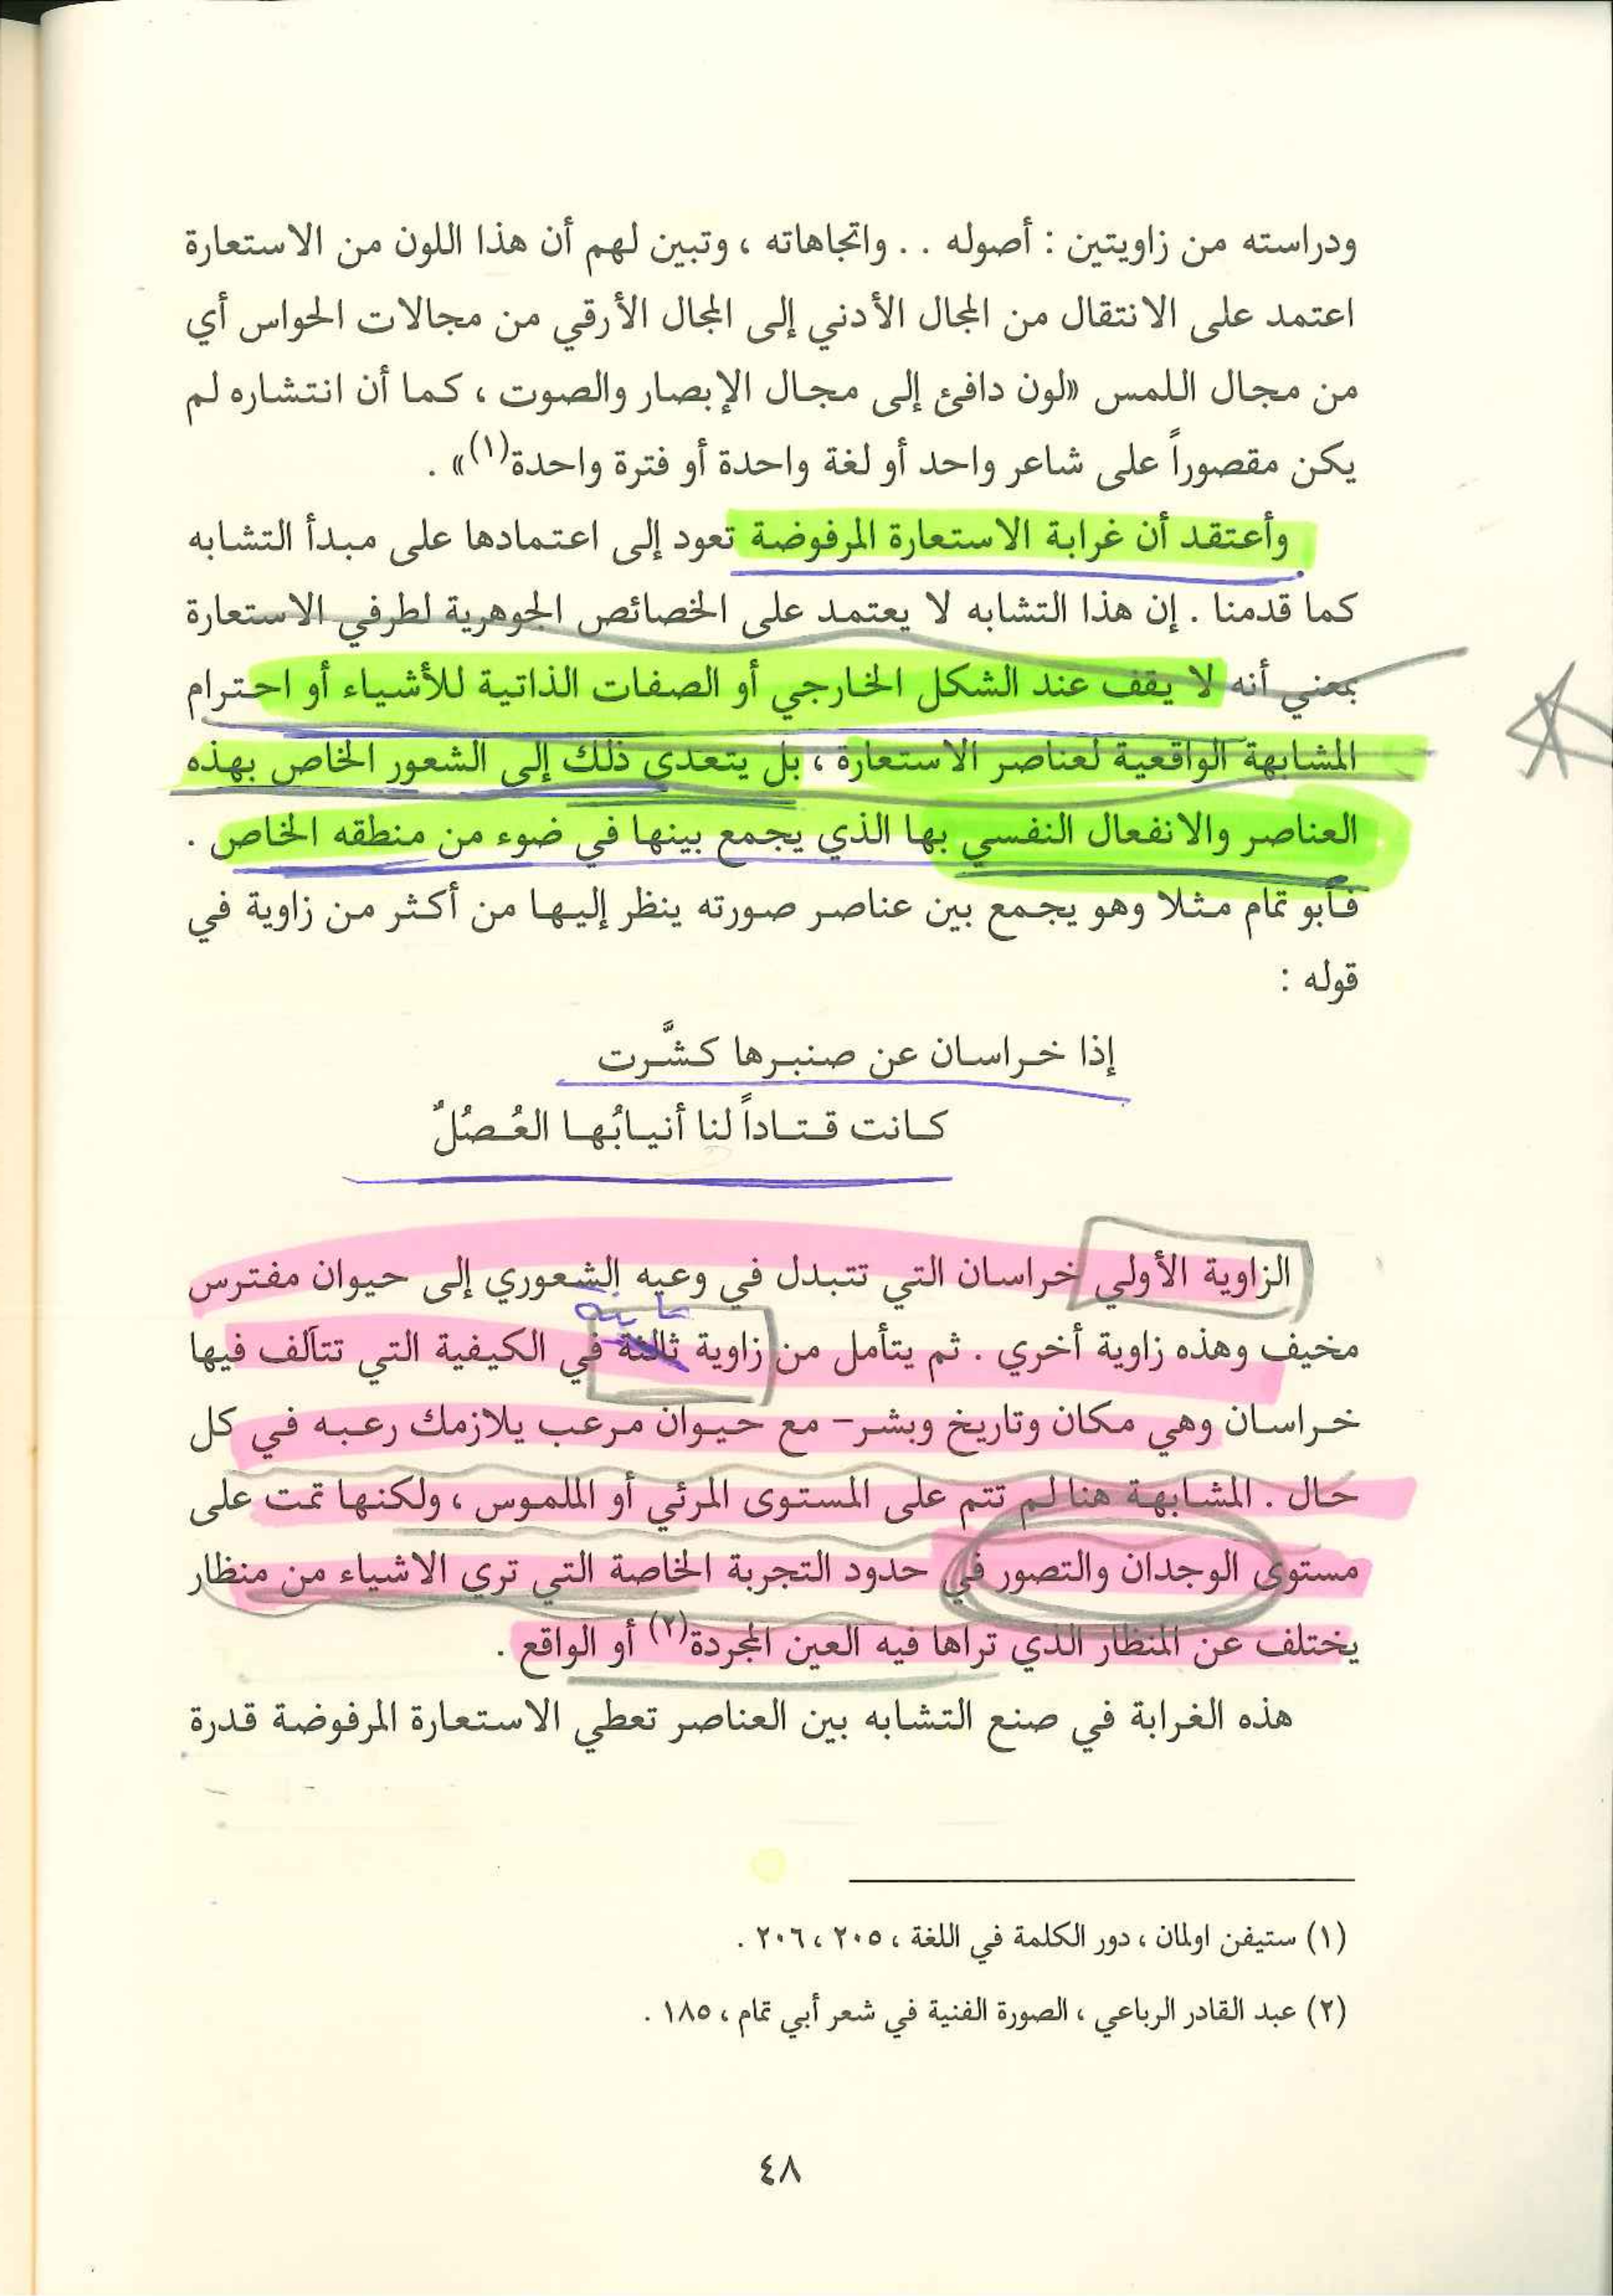 ودراسته من زاويتين : أصوله . . واتجاهاته ، وتبين لهم أن هذا اللون من الاستعارة
اعتمد على الانتقال من المجال الأدني إلى المجال الأرقي من مجالات الحواس أي
من مجال اللمس «لون دافئ إلى مجال الإبصار والصوت ، كما أن انتشاره لم
يكن مقصوراً على شاعر واحد أو لغة واحدة أو فترة واحدة(١)» .
وأعتقد أن غرابة الاستعارة المرفوضة تعود إلى اعتمادها على مبدأ التشابه
كما قدمنا . إن هذا التشابه لا يعتمد على الخصائص الجوهرية لطرفي الاستعارة
بمعني أنه لا يقف عند الشكل الخارجي أو الصفات الذاتية للأشياء أو احترام
المشابهة الواقعية لعناصر الاستعارة ، بل يتعدى ذلك إلى الشعور الخاص بهذه
العناصر والانفعال النفسي بها الذي يجمع بينها في ضوء من منطقه الخاص .
فأبو تمام مثلا وهو يجمع بين عناصر صورته ينظر إليها من أكثر من زاوية في
قوله :
إذا خراسان عن صنبرها كشَّرت
كانت قتاداً لنا أنيابُها العُصُلٌ
الزاوية الأولي خراسان التي تتبدل في وعيه الشعوري إلى حيوان مفترس
مخيف وهذه زاوية أخري . ثم يتأمل من زاوية ثالثة في الكيفية التي تتآلف فيها
خراسان وهي مكان وتاريخ وبشر– مع حيوان مرعب يلازمك رعبه في كل
حال . المشابهة هنا لم تتم على المستوى المرئي أو الملموس ، ولكنها تمت على
مستوى الوجدان والتصور في حدود التجربة الخاصة التي تري الاشياء من منظار
يختلف عن المنظار الذي تراها فيه العين المجردة(٢) أو الواقع .
هذه الغرابة في صنع التشابه بين العناصر تعطي الاستعارة المرفوضة قدرة
(١) ستيفن اولمان ، دور الكلمة في اللغة ، ٢٠٥ ، ٢٠٦ .
(٢) عبد القادر الرباعي ، الصورة الفنية في شعر أبي تمام ، ١٨٥ .
٤٨